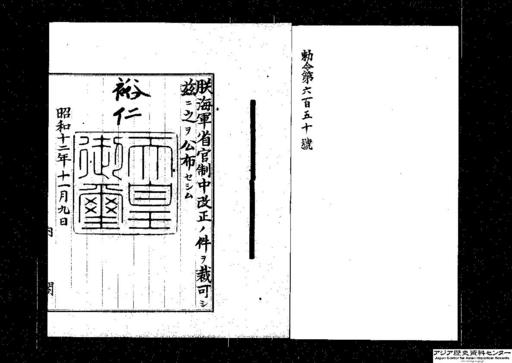 勅令第六百五十號
朕海軍省官制中改正ノ件ヲ裁可シ
茲ニ之ヲ公布セシム
裕仁
天皇御璽
昭和十二年十一月九日
内閣
アジア歴史資料センター
Japan Center for Asian Historical Records